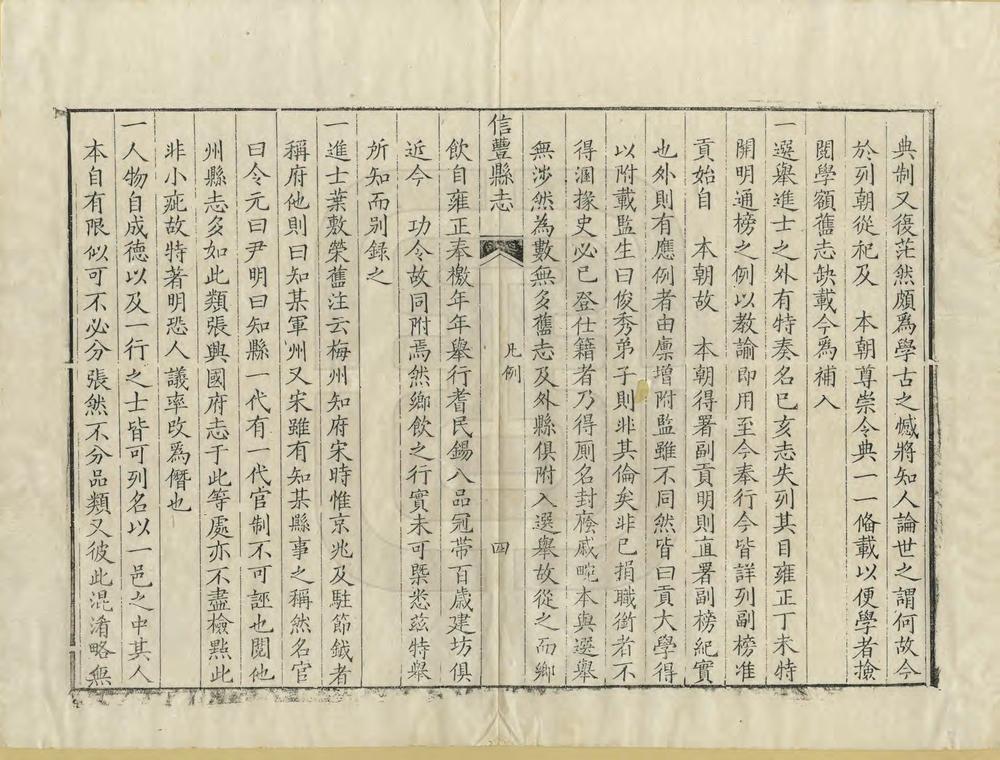 典制又復茫然頗為學古之憾將知人論世之謂何故今
於列朝從祀及　本朝尊崇令典一一備載以便學者撿
閱學額舊志缺載今為補入
一選舉進士之外有特奏名已亥志失列其目雍正丁未特
開明通榜之例以教諭即用至今奉行今皆詳列副榜准
貢始自　本朝故　本朝得署副貢明則直署副榜紀實
也外則有應例者由廩增附監雖不同然皆曰貢大學得
以附載監生曰俊秀弟子則非其倫矣非已捐職銜者不
得溷掾史必已登仕籍者乃得厠名封廕戚畹本與選舉
無涉然為數無多舊志及外縣俱附入選舉故從之而鄉
信豐縣志
凡例
四
飲自雍正奉檄年年舉行耆民錫八品冠帶百歲建坊俱
近今　功令故同附焉然鄉飲之行實未可槩悉茲特舉
所知而別録之
一進士葉敷榮舊注云梅州知府宋時惟京兆及駐節鉞者
稱府他則曰知某軍州又宋雖有知某縣事之稱然名官
曰令元曰尹明曰知縣一代有一代官制不可誣也閱他
州縣志多如此類張興國府志于此等處亦不盡檢㸃此
非小疵故特著明恐人議率改為僭也
一人物自成德以及一行之士皆可列名以一邑之中其人
本自有限似可不必分張然不分品類又彼此混淆略無